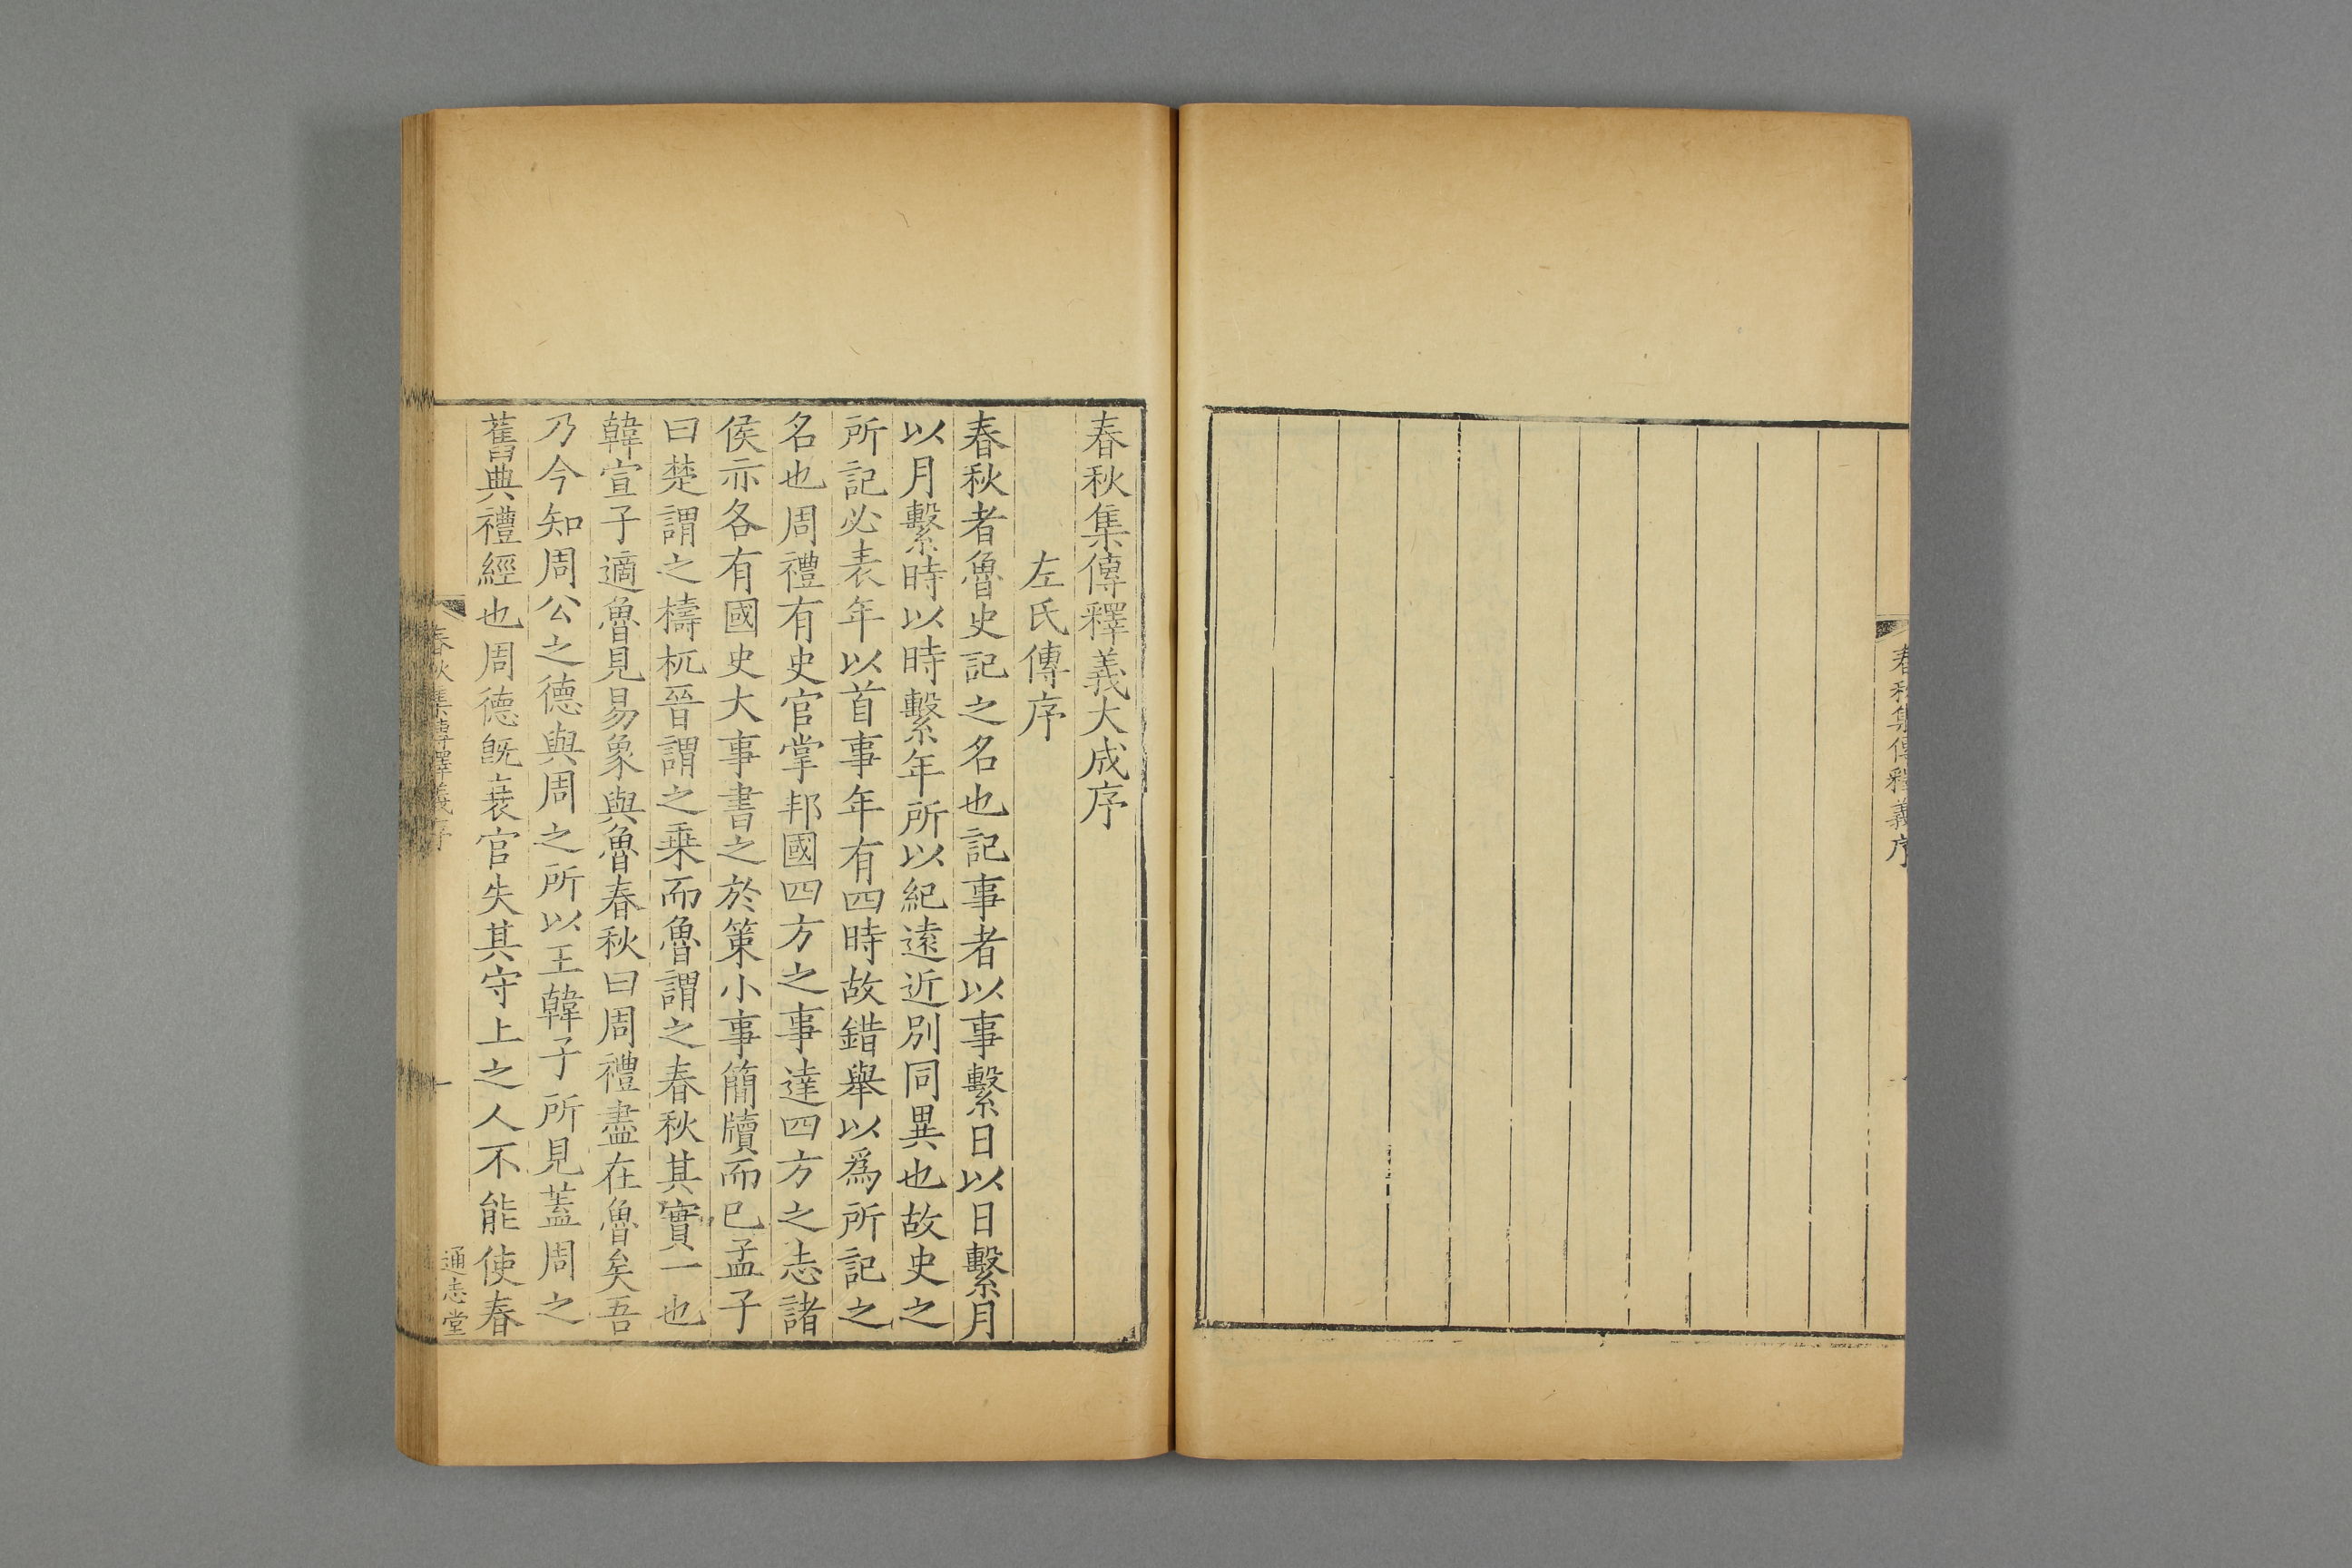 春秋集傳釋義序
春秋集傳釋義大成序
左氏傳序
春秋者魯史記之名也記事者以事繫日以日繫月
以月繫時以時繫年所以紀遠近別同異也故史之
所記必表年以首事年有四時故錯舉以爲所記之
名也周禮有史官掌邦國四方之事達四方之志諸
侯亦各有國史大事書之於策小事簡牘而已孟子
曰楚謂之檮杌晉謂之乗而魯謂之春秋其實一也
韓宣子適魯見易象與魯春秋曰周禮盡在魯矣吾
乃今知周公之德與周之所以王韓子所見蓋周之
舊典禮經也周德旣衰官失其守上之人不能使春
春秋集傳釋義序
一
通志堂